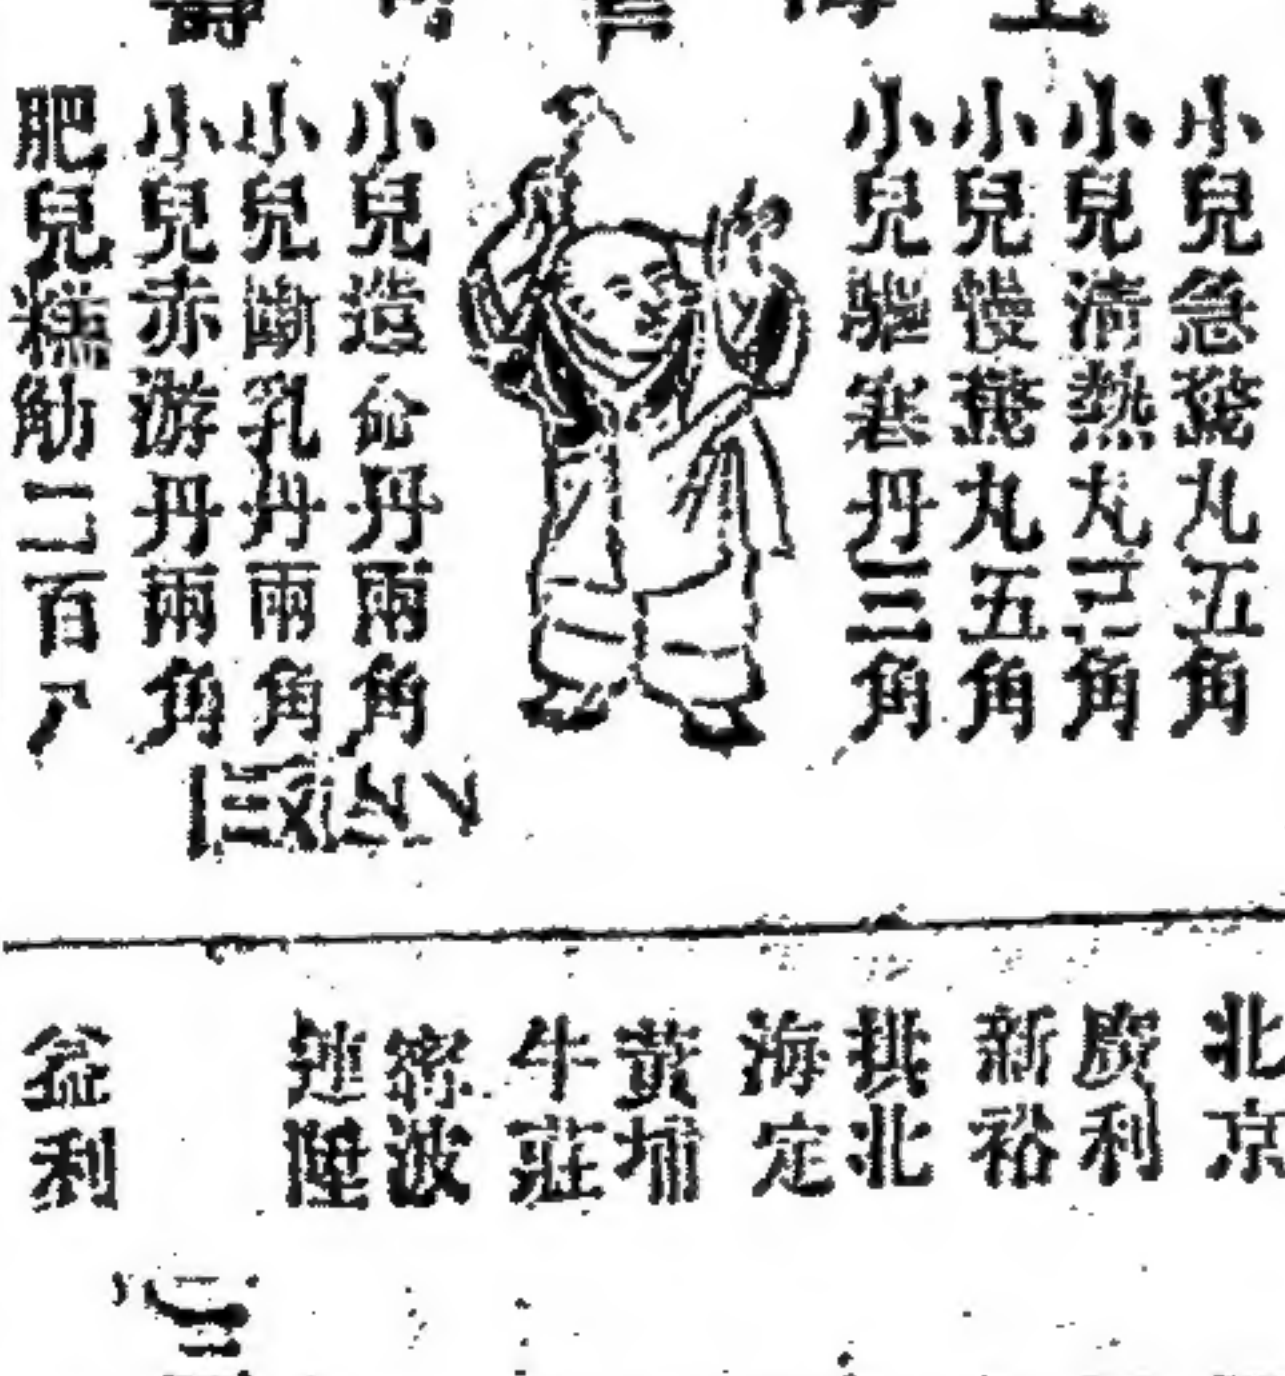 小兒急驚丸五角
小兒清熱丸三角
小兒慢驚丸五角
小兒驅寒丹三角
小兒造命丹兩角
小兒斷乳丹兩角
小兒赤游丹兩角
肥兒糕觔二百
北京
廣利
新裕
拱北
海定
黃埔
牛莊
寧波
連陞
益利